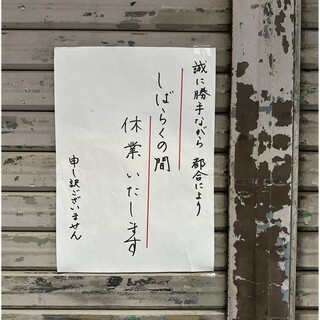 誠に勝手ながら 都合により
しばらくの間
休業いたします
申し訳ございません